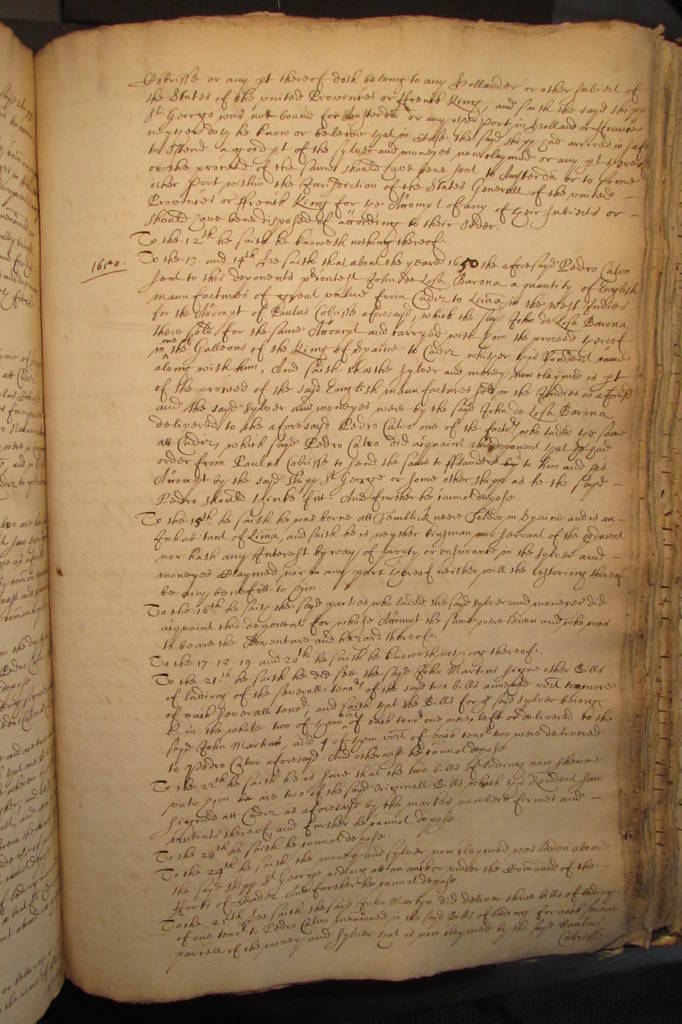 Cobrisse or any pt thereof doth belong to any Hollander or other subiect of
the States of the united Provinces or ffrench King, and saith the sayd shipp
St George was not bound for Amsterdam or any other Port in Holland or ffrance
neyther doth he know or beleeve that in Case the sayd shipp had arrived in safe
to Ostend a good pt of the sylver and moneyes now claymed or any pt thereof
or the proceed of the same should have bene sent to Amsterdam or to some
other Port within the Jurisdiction of the States Generall of the united
Provinces or ffrench King for the Accompt of any of their subiects or
should have bene disposed of according to their order.
To the 12th he saith he knoweth nothing thereof.
1650.
To the 13. and 14th hee saith that about the yeare 1650 the aforesayd Pedro Calvo
sent to this deponents John de Losa Barona a quantity of English
manufactures of great value from Cadiz to Lima in the West Indies
for the Accompt of Paulus Cobrisse aforesayd, which the sayd John de Losa Barona
there sold for the same Accompt and carryed with him the proceed thereof
in one of the Galleons of the King of Spaine to Cadiz whither this Rendent came
along with him, And saith that the sylver and money now claymed is pt
of the proceed of the said English manufactures sold in the Indies as aforesd
and the sayd sylver and moneyes were by the sayd John de Losa Barona
delivered to the aforesayd Pedro Calvo one of the factors who laded the same
att Cadiz, which sayd Pedro Calvo did acquaint this deponent that he had
order from Paulus Cobrisse to send the same to fflanders to him and his
Accompt by the sayd shipp St George or some other shipp as he the sayd
Pedro should thinke fitt. And further he cannot depose.
To the 15th he saith he was borne att neere Toledo in Spaine and is an
Inhabitant of Lima, and saith he is neyther kinsman nor servant of the
nor hath any Interest by way of property or ensurance in the sylver and
moneyes Claymed nor in any part thereof neither will the restoring thereof
be any benefitt to him.
To the 16th he saith the sayd parties who laded the sayd sylver and moneyes did
acquaint this deponent for whose Accompt the same were laden and who was
to beare the Adventure and hazard thereof.
To the 17. 18. 19. and 20th he saith he knoweth nothing thereof.
To the 21th he saith he did see the sayd John Martins signe other Bills
of lading of the severall tenors of the sayd two bills annexed with two more
of each severall tenor, and saith that the Bills for the sayd sylver being
8 in the whole two of them vizt of each tenor one were left or delivered to the
sayd John Martins, and 4 of them vizt of each tenor two were delivered
to Pedro Calvo aforesayd. And otherwise he cannot depose.
To the 22th he saith he is sure that the two bills of lading now shewne
unto him be are two of the sayd originall Bills which this Rendent saw
signed att Cadiz as aforesayd by the marks numbers firmes and
Contents thereof and further he cannot depose.
To the 23th he saith he cannot depose.
To the 24th he saith the money and sylver now claymed was laden aboard
the sayd shipp St George ryding att an anchor under the Command of the
fforts of Cadiz. And further he cannot depose.
To the 25th hee saith the sayd John Martyn did deliver three bills of lading
of one tenor to Pedro Calvo mentioned in the sayd Bills of lading for each severall
parcell of the money and sylver that is now claymed by the sayd Paulus
Cobrisse